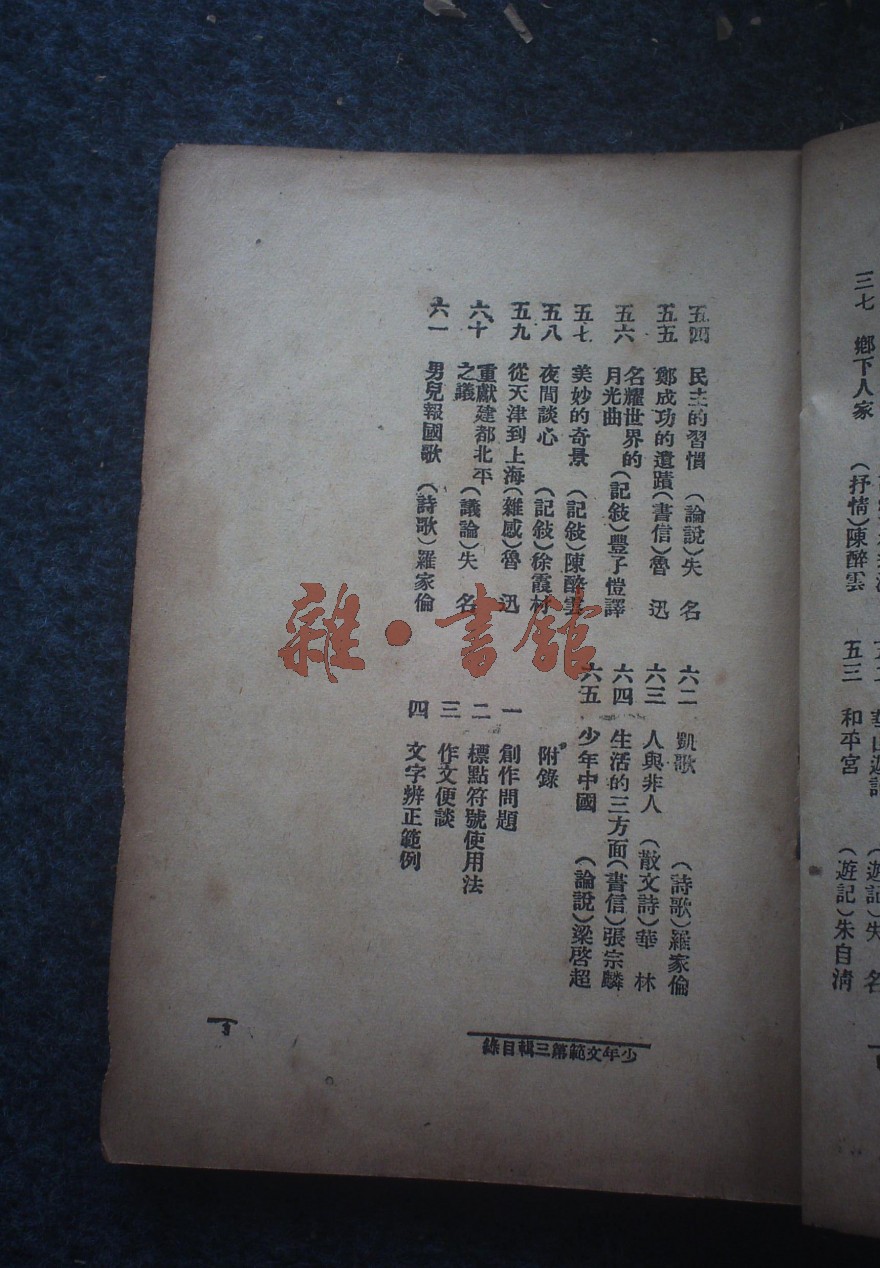 三七 鄉下人家 （抒情）陳醉雲
五三 和平宮 （遊記）朱自清
五四 民主的習慣 （論說）失 名
五五 鄭成功的遺蹟（書信）魯 迅
五六 名耀世界的
月光曲 （記敍）豐子愷譯
五七 美妙的奇景 （記敍）陳醉雲
五八 夜間談心 （記敍）徐霞村
五九 從天津到上海（雜感）魯 迅
六十 重獻建都北平
之議 （議論）失 名
六一 男兒報國歌 （詩歌）羅家倫
六二 凱歌 （詩歌）羅家倫
六三 人與非人 （散文詩）華 林
六四 生活的三方面（書信）張宗麟
六五 少年中國 （論說）梁啓超
附錄
一 創作問題
二 標點符號使用法
三 作文便談
四 文字辨正範例
少年文範第三輯目錄
3
雜·書館